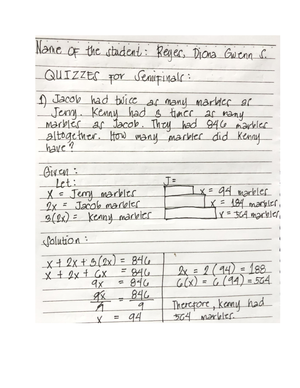 Name of the student: Reyes, Diona Gwenn S.
QUIZZES for Semifinals:
1) Jacob had twice as many marbles as
Jerry. Kenny had 3 times as many
marbles as Jacob. They had 846 marbles
altogether. How many marbles did Kenny
have?
Given:
Let:
x = Jerry marbles
2x = Jacob marbles
3(2x) = Kenny marbles
J=
x = 94 marbles
x = 188 marbles
x = 564 marbles
Solution:
x + 2x + 3(2x) = 846
x + 2x + 6x = 846
9x = 846
9x = 846
9 9
x = 94
2x = 2(94) = 188
6(x) = 6(94) = 564
Therefore, Kenny had
564 marbles.